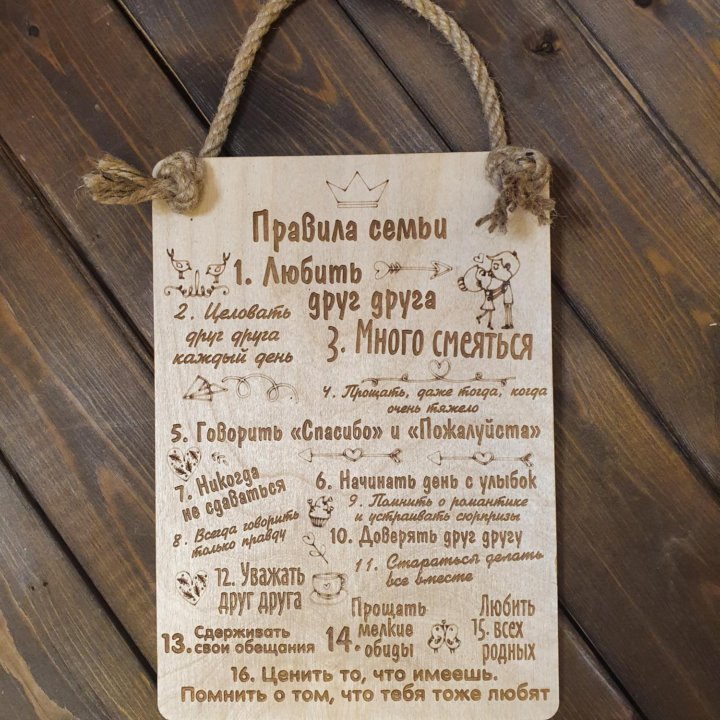 Правила семьи
1. Любить
друг друга
2. Целовать
друг друга
каждый день
3. Много смеяться
4. Прощать, даже тогда, когда
очень тяжело
5. Говорить «Спасибо» и «Пожалуйста»
6. Начинать день с улыбок
7. Никогда
не сдаваться
8. Всегда говорить
только правду
9. Помнить о романтике
и устраивать сюрпризы
10. Доверять друг другу
11. Стараться делать
все вместе
12. Уважать
друг друга
13. Сдерживать
свои обещания
14. Прощать
мелкие
обиды
Любить
15. всех
родных
16. Ценить то, что имеешь.
Помнить о том, что тебя тоже любят